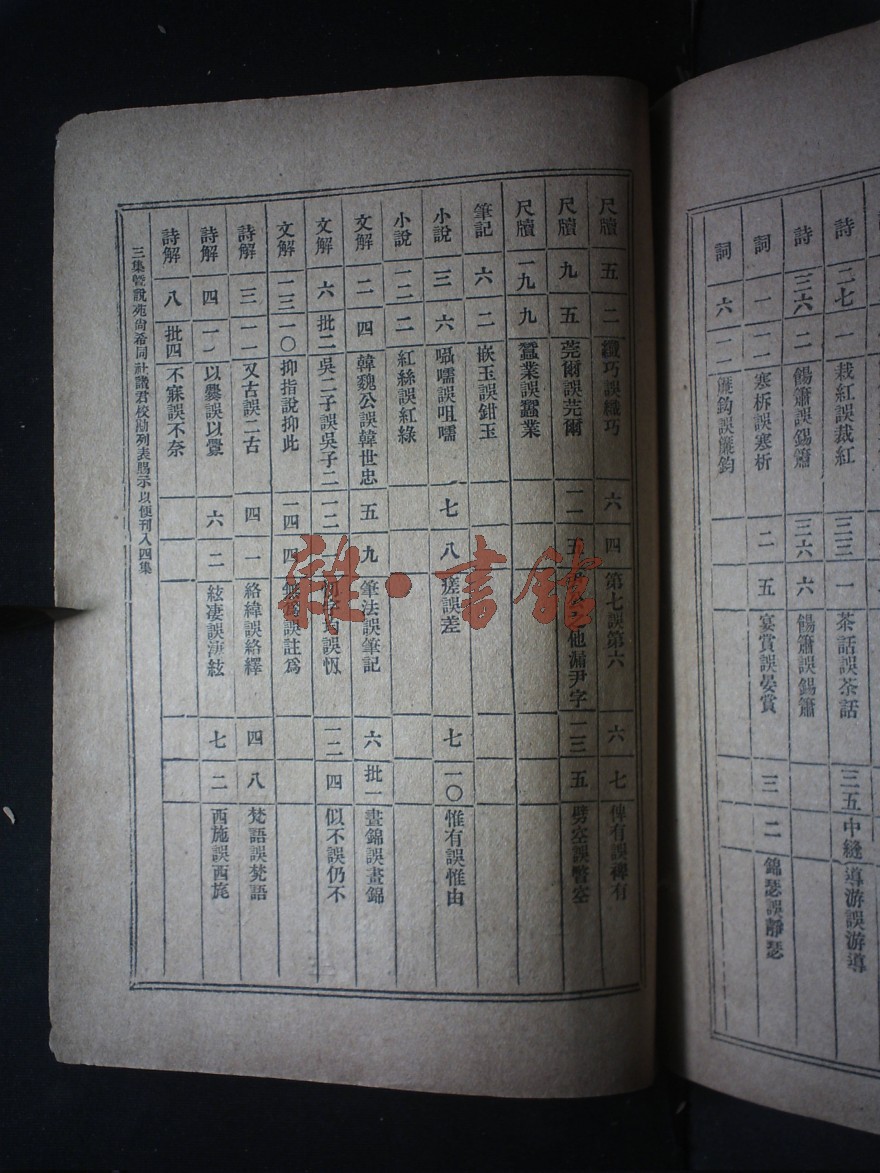 詩 二七 一 栽紅誤裁紅 三三 一 茶話誤茶話 三五 中縫 導游誤游導
詩 三六 二 餳簫誤錫簫 三六 六 餳簫誤錫簫
詞 一 一一 寒柝誤寒析 二 五 宴賞誤晏賞 三 二 錦瑟誤靜瑟
詞 六 一一 簾鈎誤簾鈞
尺牘 五 二 纖巧誤織巧 六 四 第七誤第六 六 七 俾有誤裨有
尺牘 九 五 莞爾誤莞爾 一一 五 他漏尹字 一三 五 劈空誤瞥空
尺牘 一九 九 蠶業誤蠶業
筆記 六 二 嵌玉誤鉗玉
小說 三 六 囁嚅誤咀嚅 七 八 瘥誤差 七 一〇 惟有誤惟由
小說 一二 二 紅絲誤紅綠
文解 二 四 韓魏公誤韓世忠 五 九 筆法誤筆記 六 批一 晝錦誤畫錦
文解 六 批二 吳二子誤吳子二 一二 一 誤恆 一二 四 似不誤仍不
文解 一三 一〇 抑指說抑此 一四 四 誤註爲
詩解 三 一一 又古誤二古 四 一 絡緯誤絡繹 四 八 梵語誤梵語
詩解 四 一一 以釁誤以釁 六 二 絃凄誤淒絃 七 二 西施誤西施
詩解 八 批四 不寐誤不奈
三集曁說苑尙希同社諸君校勘列表賜示以便刊入四集
雜·書館